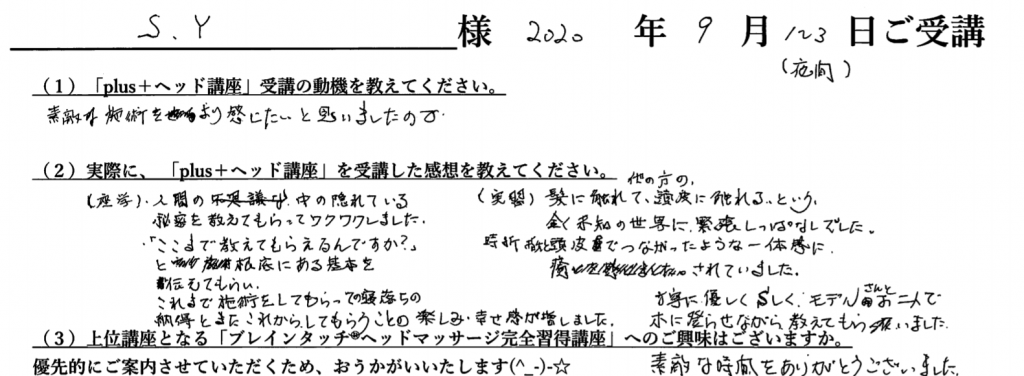 S.Y 様 2020 年 9 月 1~3 日ご受講
(夜間)
(1)「plus+ヘッド講座」受講の動機を教えてください。
素敵な施術をより感じたいと思いましたので
(2)実際に、「plus+ヘッド講座」を受講した感想を教えてください。
(座学)・人間の中の隠れている
秘密を教えてもらってワクワクしました。
・「ここまで教えてもらえるんですか?」
と根底にある基本を
伝えてもらい、
これまで施術をしてもらっての寝落ちの
納得とまたこれからしてもらうことの楽しみ・幸せ感が増しました。
(実習) 他の方の、
髪に触れて、頭皮に触れる、という、
全く未知の世界に緊張しっぱなしでした。
時折頭皮でつながったような一体感に
されていました。
優しく楽しく、モデルさんとお二人で
木に登らせながら教えてもらいました。
素敵な時間をありがとうございました。
(3)上位講座となる「ブレインタッチ®ヘッドマッサージ完全習得講座」へのご興味はございますか。
優先的にご案内させていただくため、おうかがいいたします(^_-)-☆